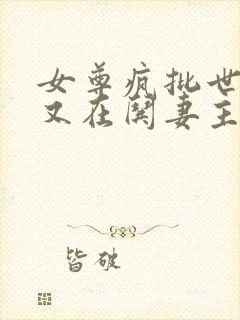 女尊疯批世
又在闋妻主
皆破